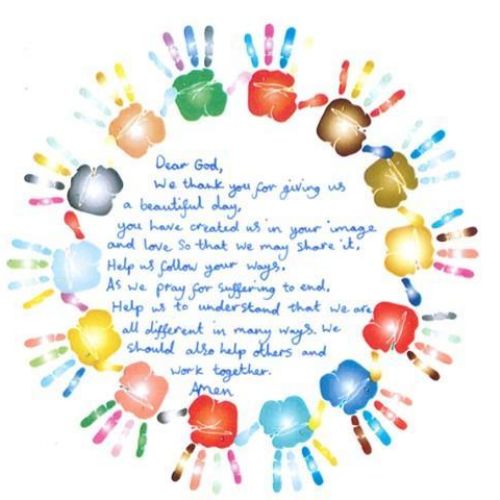 Dear God,
We thank you for giving us
a beautiful day,
you have created us in your image
and love so that we may share it.
Help us follow your ways.
As we pray for suffering to end.
Help us to understand that we are
all different in many ways. We
should also help others and
work together.
Amen